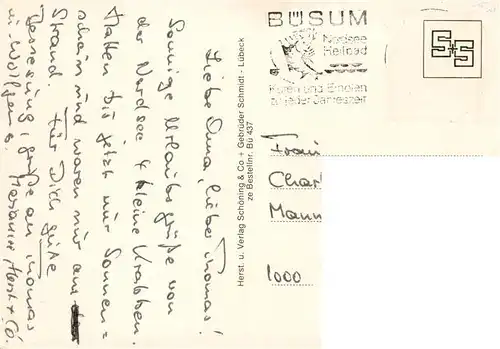 Liebe Oma, lieber Thomas!
Sonnige Urlaubsgrüße von
der Nordsee + kleine Krabben.
Hatten bis jetzt nur Sonnen=
schein und waren nur am
Strand. Für Dich gute
Besserung, grüße an Thomas
u. Wolfgang
Marianne Horst & Co.
Herst. u. Verlag Schöning & Co + Gebrüder Schmidt - Lübeck
ze Bestellnr. Bü 437
BÜSUM
Nordsee
Heilbad
Kuren und Erholen
zu jeder Jahreszeit
S+S
Frau
Char
Mann
1000